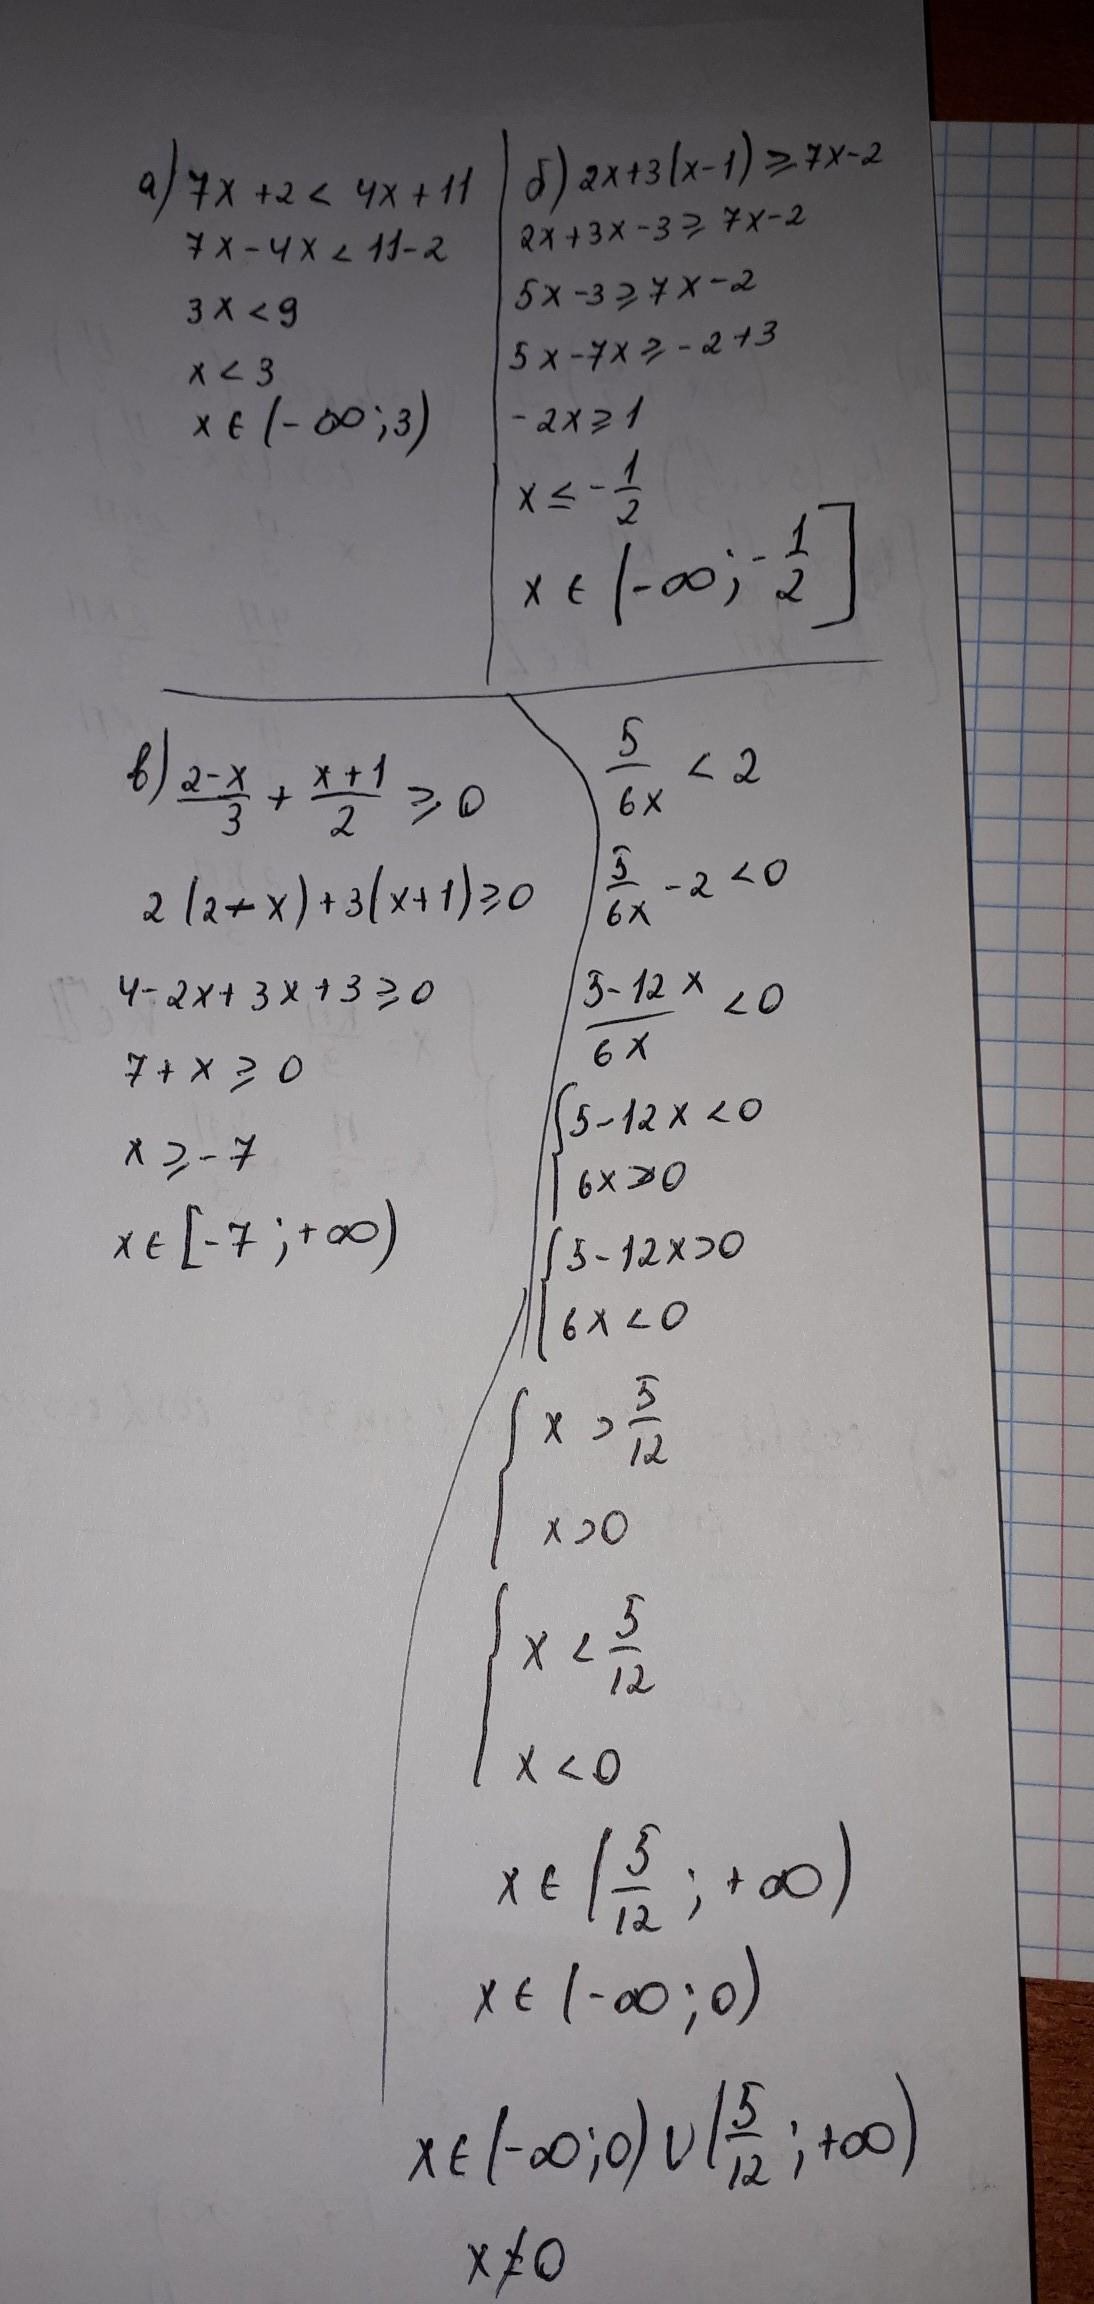 а) 7x + 2 < 4x + 11
7x - 4x < 11 - 2
3x < 9
x < 3
x ∈ (-∞; 3)
б) 2x + 3(x-1) ≥ 7x - 2
2x + 3x - 3 ≥ 7x - 2
5x - 3 ≥ 7x - 2
5x - 7x ≥ -2 + 3
-2x ≥ 1
x ≤ -1/2
x ∈ (-∞; -1/2]
в) (2-x)/3 + (x+1)/2 ≥ 0
2(2-x) + 3(x+1) ≥ 0
4 - 2x + 3x + 3 ≥ 0
7 + x ≥ 0
x ≥ -7
x ∈ [-7; +∞)
5/6x < 2
5/6x - 2 < 0
(5-12x)/6x < 0
{5 - 12x < 0
6x > 0
{5 - 12x > 0
6x < 0
{x > 5/12
x > 0
{x < 5/12
x < 0
x ∈ (5/12; +∞)
x ∈ (-∞; 0)
x ∈ (-∞; 0) ∪ (5/12; +∞)
x ≠ 0